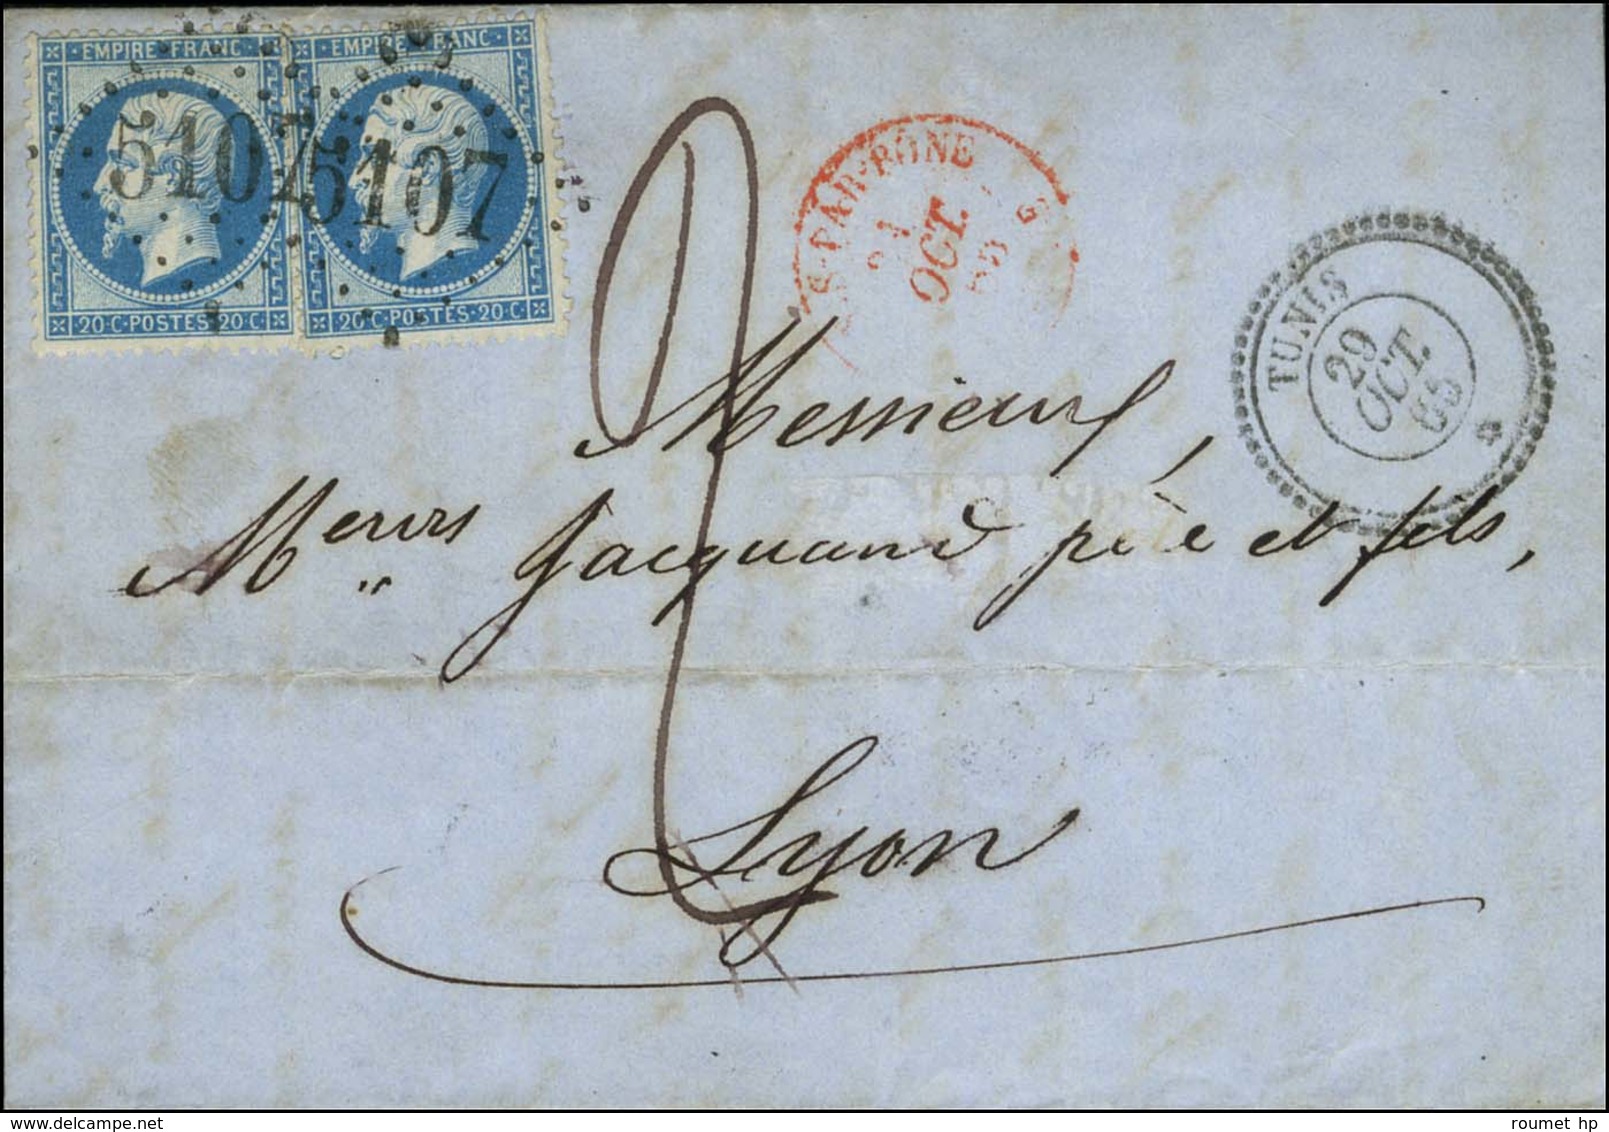 EMPIRE FRANC
EMPIRE FRANC
5107
5107
20 C POSTES 20 C
20 C POSTES 20 C
PAR-BÔNE
OCT.
TUNIS
29
OCT.
65
2
Messieurs
Messieurs Jacquand père et fils,
Lyon
roumet hp